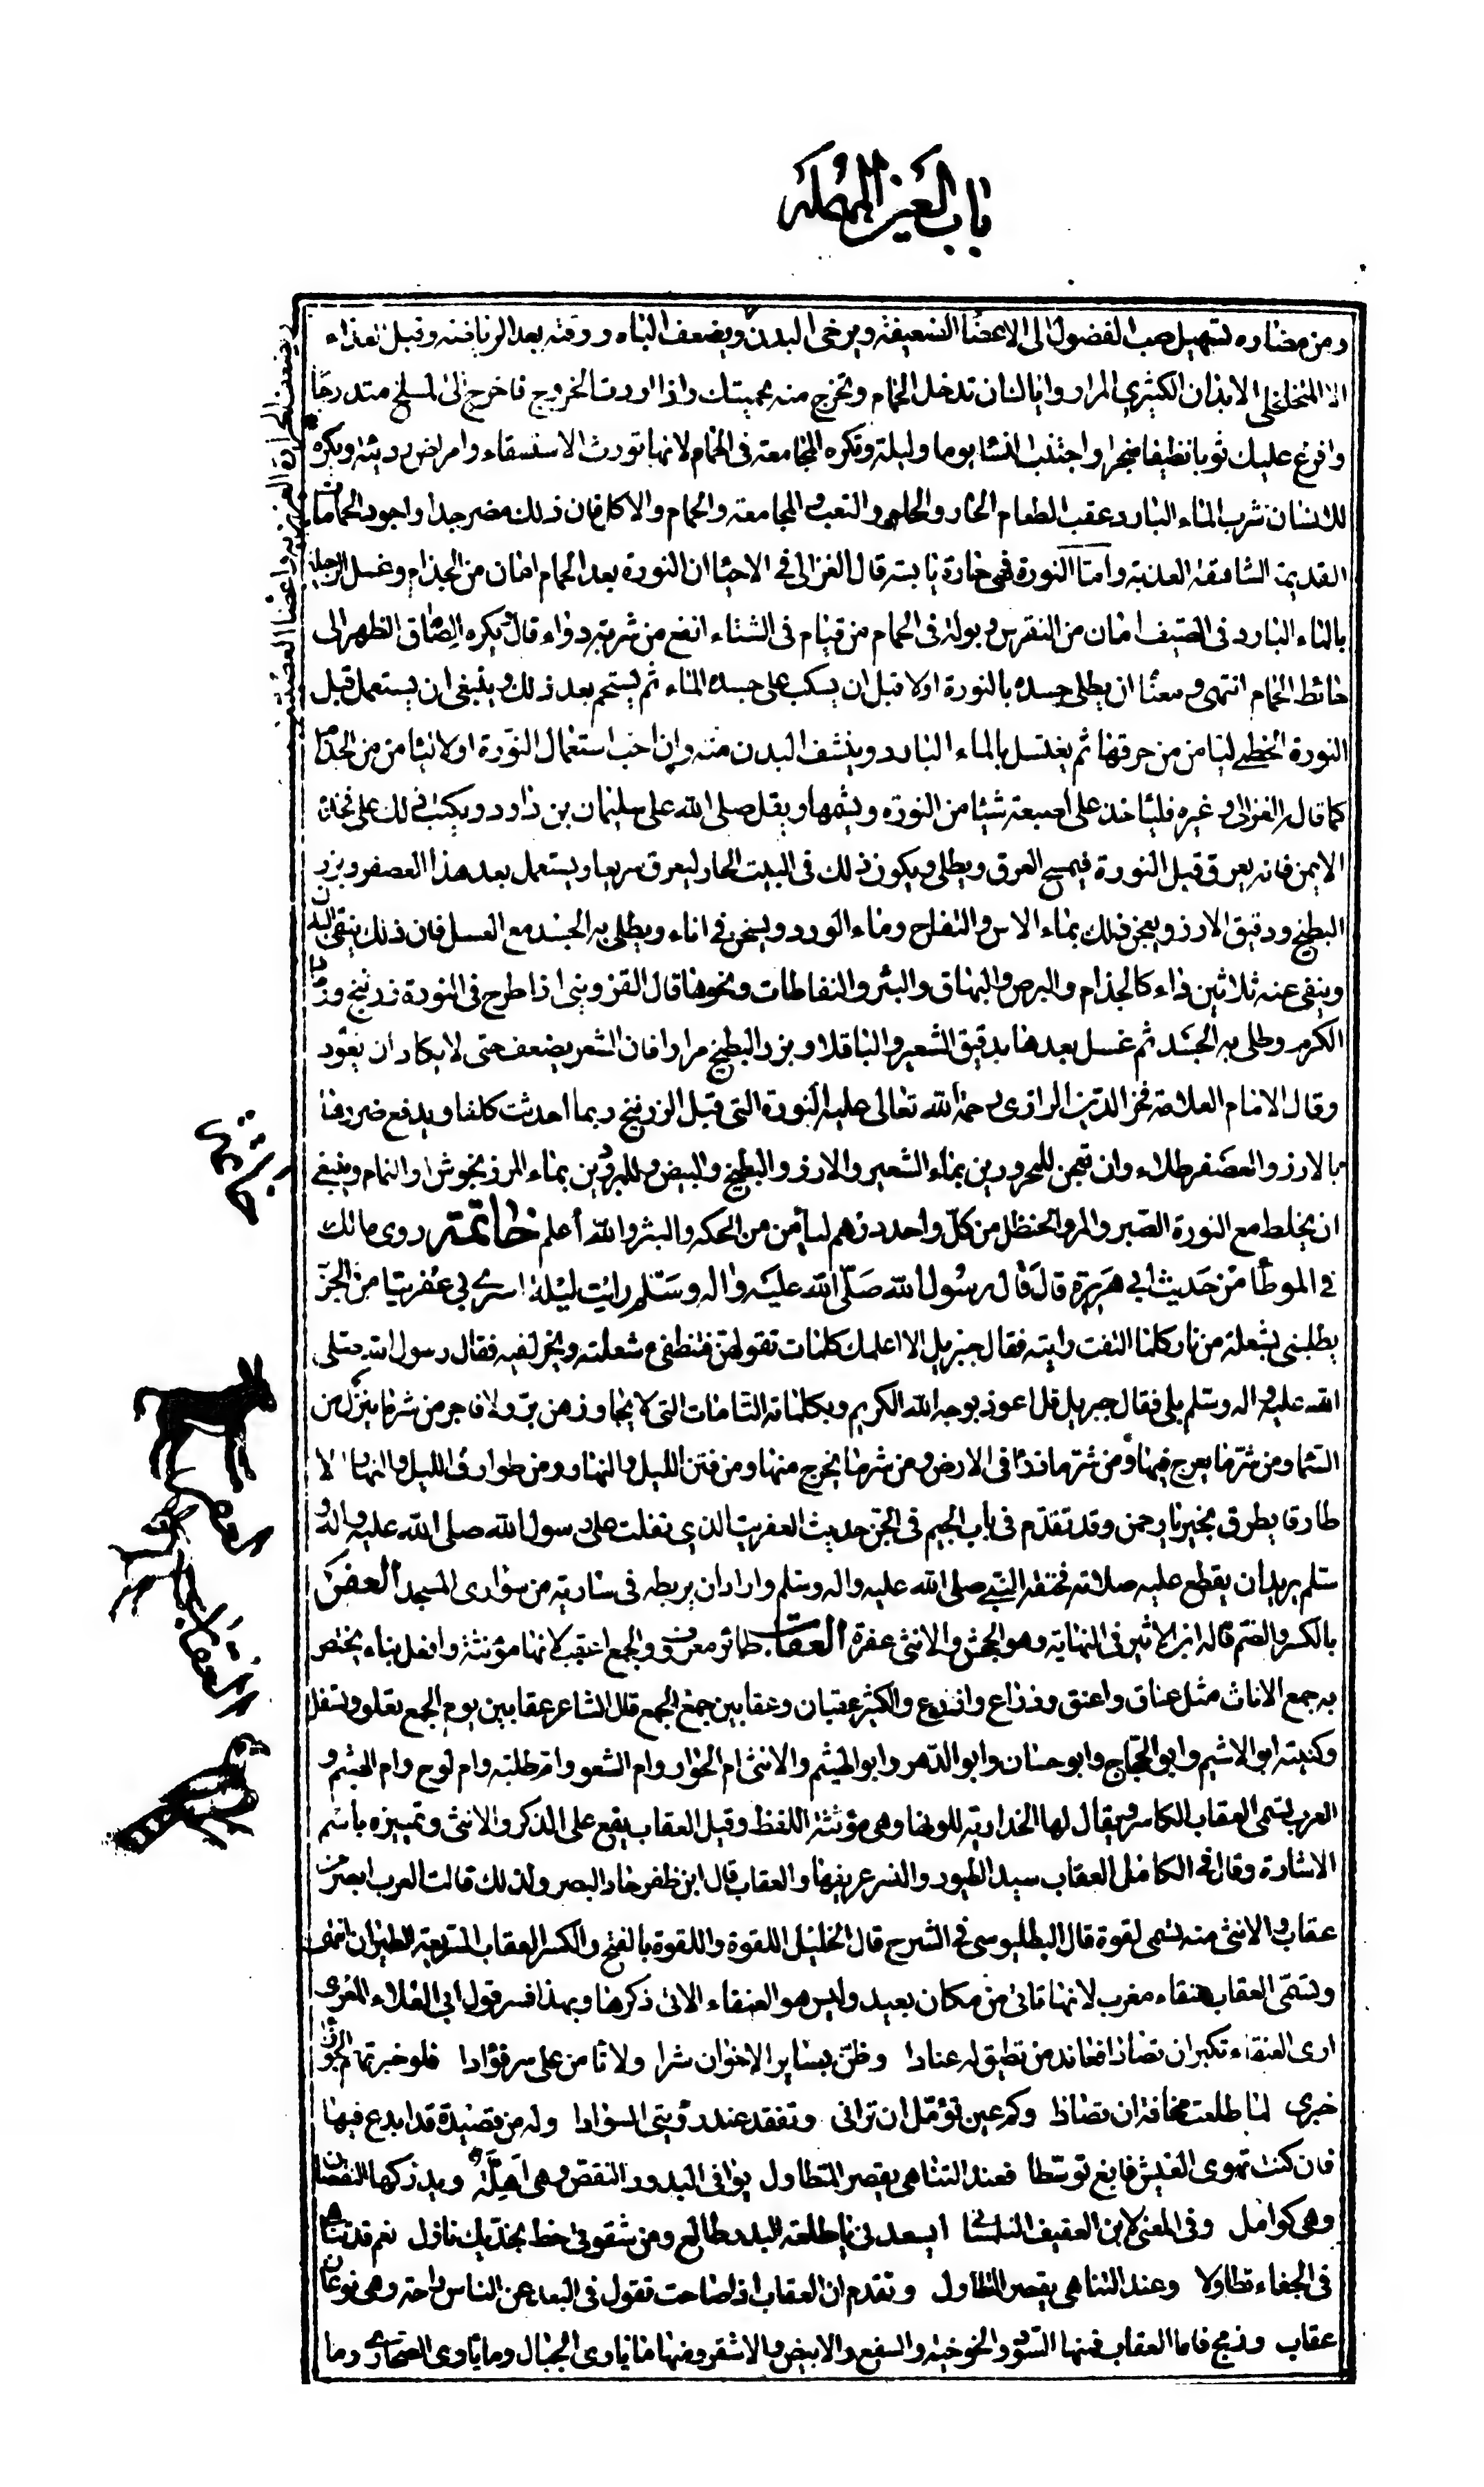 باب العين المهملة
ومن مضاره تسهيل صب الفضول الى الاعضا الضعيفة ويرخى البدن ويضعف الباه ووقته بعد الرياضة وقبل الغذاء
الا المتخلخلى الابدان الكثيرى المرار وايالك ان تدخل الحمام وتخرج منه بحميتك واذا اردت الخروج فاخرج الى المسلخ متدرجا
وافرغ عليك ثوبا نظيفا مبخرا واجتنب النسا يوما وليلة وتكره المجامعة فى الحمام لانها تورث الاستسقاء وامراض رديئة ويكره
للانسان شرب الماء البارد عقب الطعام الحار والحلو والتعب والمجامعة والحمام والاكل فان ذلك مضر جدا واجود الحمامات
القديمة الشاهقة العذبة واما النورة فهى حارة يابسة قال الغزالى فى الاحيا ان النورة بعد الحمام امان من الجذام وغسل الرجلين
بالماء البارد فى الصيف امان من النقرس وبولة فى الحمام من قيام فى الشتاء انفع من شربة دواء قال يكره الصاق الظهر الى
حائط الحمام انتهى ومعنا ان يطلى جسده بالنورة اولا قبل ان يسكب على جسده الماء ثم يستحم بعد ذلك وينبغى ان يستعمل قبل
النورة الخطمى ليامن من حرقها ثم يغتسل بالماء البارد وينشف البدن منه وان احب استعمال النورة اولا ليامن من الجذام
كما قال الغزالى وغيره فلياخذ على اصبعه شيئا من النورة ويشمها ويقل صلى الله على سليمان بن داود ويكتب ذلك على فخذه
الايمن فانه يعرق قبل النورة فيمسح العرق ويطلى ويكون ذلك فى البيت الحار ليعرق سريعا ويستعمل بعد هذا العصفر وبزر
البطيخ ودقيق الارز ويعجن ذلك بماء الاس والتفاح وماء الورد ويسخن فى اناء ويطلى به الجسد مع العسل فان ذلك ينقى البدن
وينفى عنه ثلاثين داء كالجذام والبرص والبهاق والبثر والنفاطات ونحوها قال القزوينى اذا طرح فى النورة زرنيخ ورماد
الكرم وطلى به الجسد ثم غسل بعدها بدقيق الشعير والباقلا وبزر البطيخ مرارا فان الشعر يضعف حتى لا يكاد ان يعود
وقال الامام العلامة فخر الدين الرازى رحمة الله تعالى عليه النورة التى قبل الزرنيخ ربما احدثت كلفا ويدفع ضررها
بالارز والعصفر طلاء وان تعجن للمحرورين بماء الشعير والارز والبطيخ والبيض وللمبرودين بماء المرزنجوش او النمام وينبغى
ان يخلط مع النورة الصبر والمر والحنظل من كل واحد درهم ليأمن من الحكه والبثر والله أعلم خاتمة روى مالك
فى الموطأ من حديث ابى هريرة قال قال رسول الله صلى الله عليه واله وسلم رايت ليلة اسرى بى عفريتا من الجن
يطلبنى بشعلة من نار كلما التفت رايته فقال جبريل الا اعلمك كلمات تقولهن فتنطفى شعلته ويخر لفيه فقال رسول الله صلى
الله عليه واله وسلم بلى فقال جبريل قل اعوذ بوجه الله الكريم وبكلماته التامات التى لا يجاوزهن بر ولا فاجر من شر ما ينزل من
السما ومن شر ما يعرج فيها ومن شر ما ذرا فى الارض ومن شر ما يخرج منها ومن فتن الليل والنهار ومن طوارق الليل والنهار الا
طارقا يطرق بخير يا رحمن وقد تقدم فى باب الجيم فى الجن حديث العفريت الذى تفلت على رسول الله صلى الله عليه واله و
سلم يريد ان يقطع عليه صلاته فخنقه النبى صلى الله عليه واله وسلم واراد ان يربطه فى سارية من سوارى المسجد العفر
بالكسر والضم قاله ابن الاثير فى النهاية وهو الجحش والانثى عفرة العقاب طائر معروف والجمع اعقب لانها مؤنثة وافعل بناء يختص
به جمع الاناث مثل عناق واعنق وذراع واذرع والكثير عقبان وعقابين جمع الجمع قال الشاعر عقابين يوم الجمع تعلو وتسفل
وكنيته ابو الاشيم وابو الحجاج وابو حسان وابو الدهر وابو الهيثم والانثى ام الحوار وام الشعو وام طلبة وام لوح وام الهيثم و
العرب تسمى العقاب الكاسر ويقال لها الخدارية للونها وهى مؤنثة اللفظ وقيل العقاب يقع على الذكر والانثى وتمييزه باسم
الاشارة وقال فى الكامل العقاب سيد الطيور والنسر عريفها والعقاب قال ابن ظفر حاد البصر ولذلك قالت العرب ابصر من
عقاب والانثى منه تسمى لقوة قال البطليوسى فى الشرح قال الخليل اللقوة واللقوة بالفتح والكسر العقاب السريعة الطيران انتهى
وتسمى العقاب عنقاء مغرب لانها تاتى من مكان بعيد وليس هو العنقاء الاتى ذكرها وبهذا فسر قول ابى العلاء المعرى
ارى العنقاء تكبر ان تصادا فعاند من تطيق له عنادا وظن بساير الاخوان شرا ولا تأمن على سر فؤادا فلو خبرتهم الجوزاء
خبرى لما طلعت مخافة ان تصادا وكم عين تؤمل ان ترانى وتفقد عند رؤيتى السوادا وله من قصيدة قد ابدع فيها
فان كنت تهوى العيش فابغ توسطا فعند التناهى يقصر المتطاول يوافى البدور النقص وهى اهلة ويدركها النقصان
وهى كوامل وفى المعنى لابن العفيف التلمسانى ايسعدنى يا طلعة البدر طالع ومن شقوتى خط بخديك نازل نعم قد تناهى
فى الجفاء تطاولا وعند التناهى يقصر المتطاول وتقدم ان العقاب اذا صاحت تقول فى البعد عن الناس راحة وهى نوعان
عقاب وزمج فاما العقاب فمنها السود والخوخية والسفع والابيض والاشقر ومنها ما ياوى الجبال وما ياوى الصحارى وما
خاتمة
العفر
العقاب